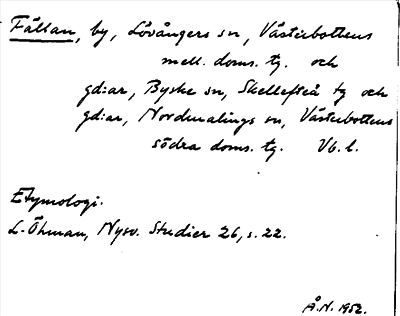 Fällan, by, Lövångers sn, Västerbottens
mell. doms. tg. och
gd:ar, Byske sn, Skellefteå tg och
gd:ar, Nordmalings sn, Västerbottens
södra doms. tg. Vb. l.
Etymologi.
L. Öhman, Nysv. Studier 26, s. 22.
Å.N. 1952.